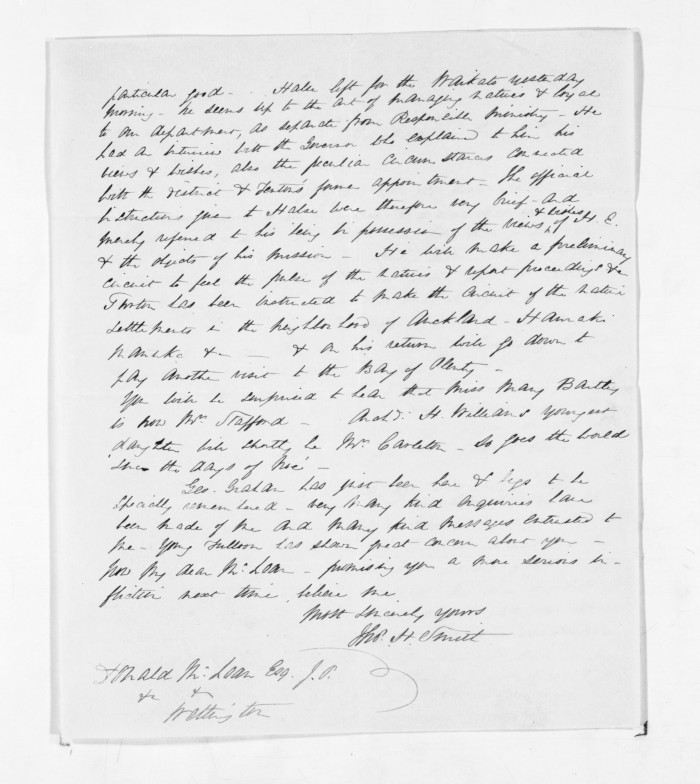 particular good - . Halse left for the Waikato yesterday
morning - he seems up to the art of managing natives & loyal
to our department, as separate from Responsible Ministry - He
had an interview with the Governor who explained to him his
views & wishes, also the peculiar circumstances connected
with the district & Fenton's former appointment - The official
instructions given to Halse were therefore very brief - and
merely referred to his being in possession of the views & wishes of H. E.
& the objects of his mission - He will make a preliminary
circuit to feel the pulse of the natives & report proceedings &c
has been instructed to make the circuit of the native
settlements in the neighborhood of Auckland - Hauraki
Manuka &c - & on his return will go down to
pay another visit to the Bay of Plenty -
You will be surprised to hear that Miss Mary Bartley
is now Mrs. Stafford - Archd. H. Williams youngest
daughter will shortly be Mrs. Carleton - So goes the world
since the days of
Geo. Graham has just been here & begs to be
specially remembered - very many kind inquiries have
been made of me and many kind messages entrusted to
me - Young Fulloon has shown great concern about you -
Now my dear McLean - promising you a more serious in-
fliction next time believe me
Most sincerely yours
Jno. H. Smith
Donald McLean Esq. J.P.
&c &
Wellington